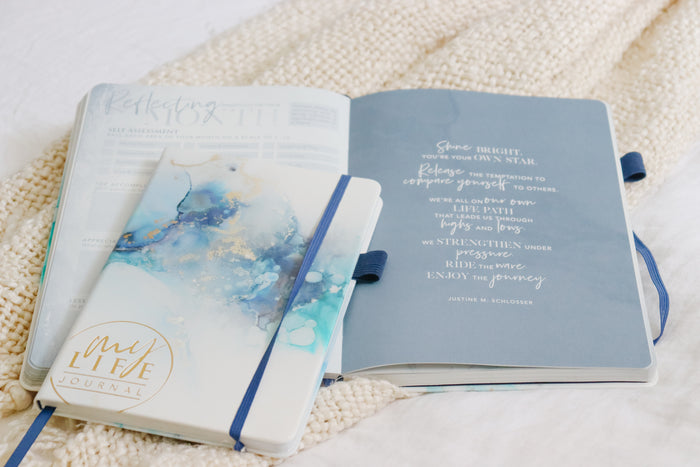 Reflecting
MONTH
SELF ASSESSMENT
Shine BRIGHT.
YOU'RE YOUR OWN STAR.
Release THE TEMPTATION TO
compare yourself TO OTHERS.
WE'RE ALL ON our own
LIFE PATH
THAT LEADS US THROUGH
highs AND lows.
WE STRENGTHEN UNDER
pressure.
RIDE THE wave.
ENJOY THE journey
JUSTINE M. SCHLOSSER
my
LIFE
JOURNAL